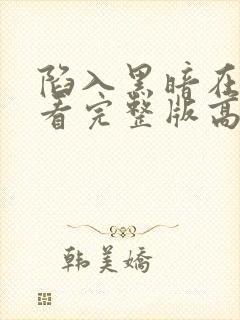 陷入黑暗在
看完整版高
韩美娇